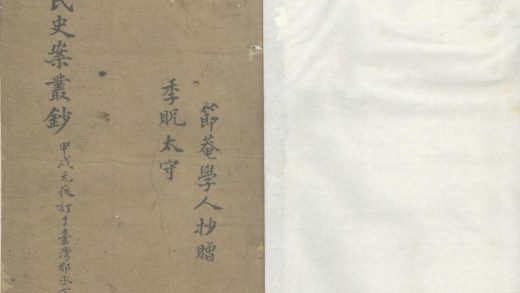 節菴學人抄贈
季貺太守
民史案叢鈔
甲戌元夜訂于臺灣郡丞